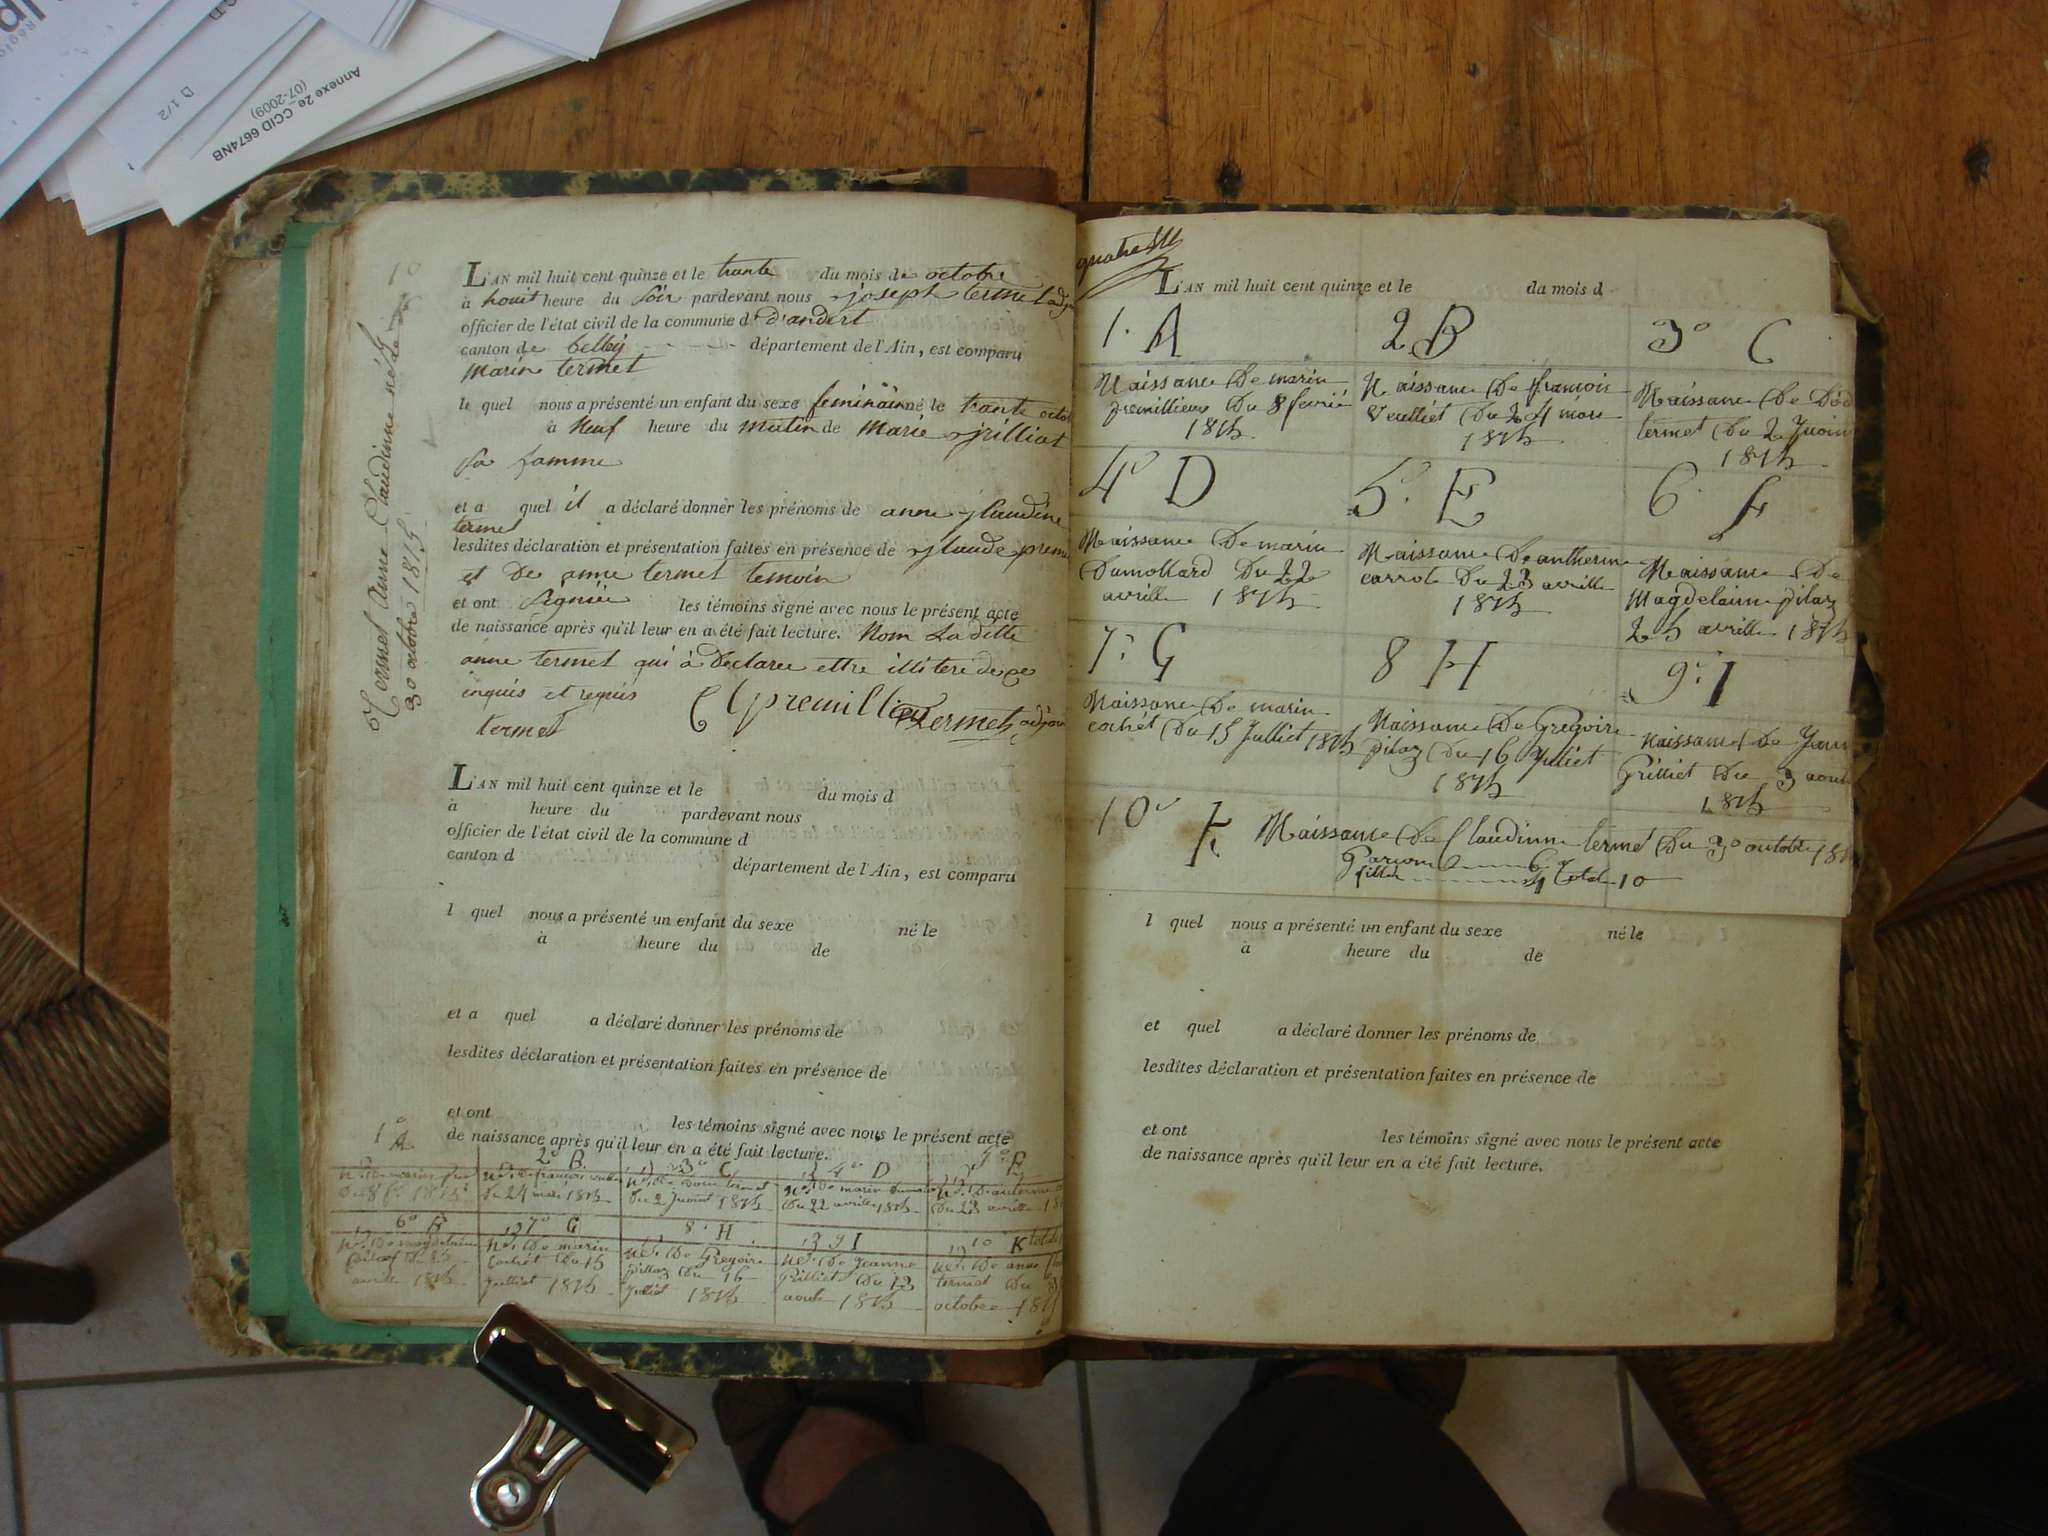 Annexe 2e_CCID 6674NB
(07-2009)
D 1/2
10
Termet Anne Claudinne née le
30 octobre 1815
L'AN mil huit cent quinze et le trante du mois de octobre
à houit heure du soir pardevant nous joseph termet adj
officier de l'état civil de la commune d d'andert
canton de belley département de l'Ain, est comparu
marin termet
le quel nous a présenté un enfant du sexe feminain né le trante octob
à neuf heure du matin de marie grilliat
sa famme
et a quel il a déclaré donner les prénoms de anne glaudine
termet
lesdites déclaration et présentation faites en présence de glaude premi
et de anne termet temoin
et ont signiée les témoins signé avec nous le présent acte
de naissance après qu'il leur en a été fait lecture. Nom Laditte
anne termet qui à declaree ettre illitere de ce
inquis et requis
Cl premillieu termet adjoin
termet
L'AN mil huit cent quinze et le du mois d
à heure du pardevant nous
officier de l'état civil de la commune d
canton d département de l'Ain, est comparu
l quel nous a présenté un enfant du sexe né le
à heure du de
et a quel a déclaré donner les prénoms de
lesdites déclaration et présentation faites en présence de
et ont les témoins signé avec nous le présent acte
de naissance après qu'il leur en a été fait lecture.
1° A 2° B 3° C 4° D 5° E
du 24 mars 1815 du 2 Juin 1815 du 22 avrille 1815 du 23 avrille 18
6° 7° G 8° H 9 I 10° K total
Ne. De magdelaine Ne. De marin Ne. De Gregoire Ne. De Jeanne Ne. De anne
cochét du 15 pillaz du 16 Grilliet Du termet du
1815 Julliet 1815 Julliet 1815 aout 1815 octobre 181
quatre
L'AN mil huit cent quinze et le du mois d
1. A 2 B 3° C
Naissance De marin Naissance De françois Naissance De
premillieux Du 8 fevrié Veulliét Du 24 mars termet Du 2 Juoin
1815 1815 1815
4° D 5. E 6. F
Naissance De marin Naissance De antherme Naissance De
Dumollard Du 22 carrot Du 23 avrille Magdelainne pilaz
avrille 1815 1815 25 avrille 1815
7. G 8 H 9. I
Naissance De marin Naissance De Gregoire Naissance De Jean
cochét Du 15 Julliet 1815 pilaz Du 16 Julliet Grilliet Du 3 aout
1815 1815
10° K Naissance De Claudinne termet Du 30 octobre 181
Garçon 6
filles 4 total 10
l quel nous a présenté un enfant du sexe né le
à heure du de
et quel a déclaré donner les prénoms de
lesdites déclaration et présentation faites en présence de
et ont les témoins signé avec nous le présent acte
de naissance après qu'il leur en a été fait lecture.